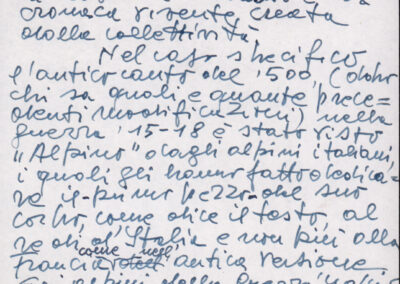 cronaca vivente creata
dalla collettività
Nel caso specifico
l'antico canto del '500, (dopo
chi sa quali e quante prece=
denti modificazioni) nella
guerra '15-18 è stato visto
"Alpino" dagli alpini italiani,
i quali gli hanno fatto dedica=
re il primo pezzo del suo
corpo, come dice il testo, al
re di d'Italia e non più alla
Francia come nell' antica versione.
alpini della guerra